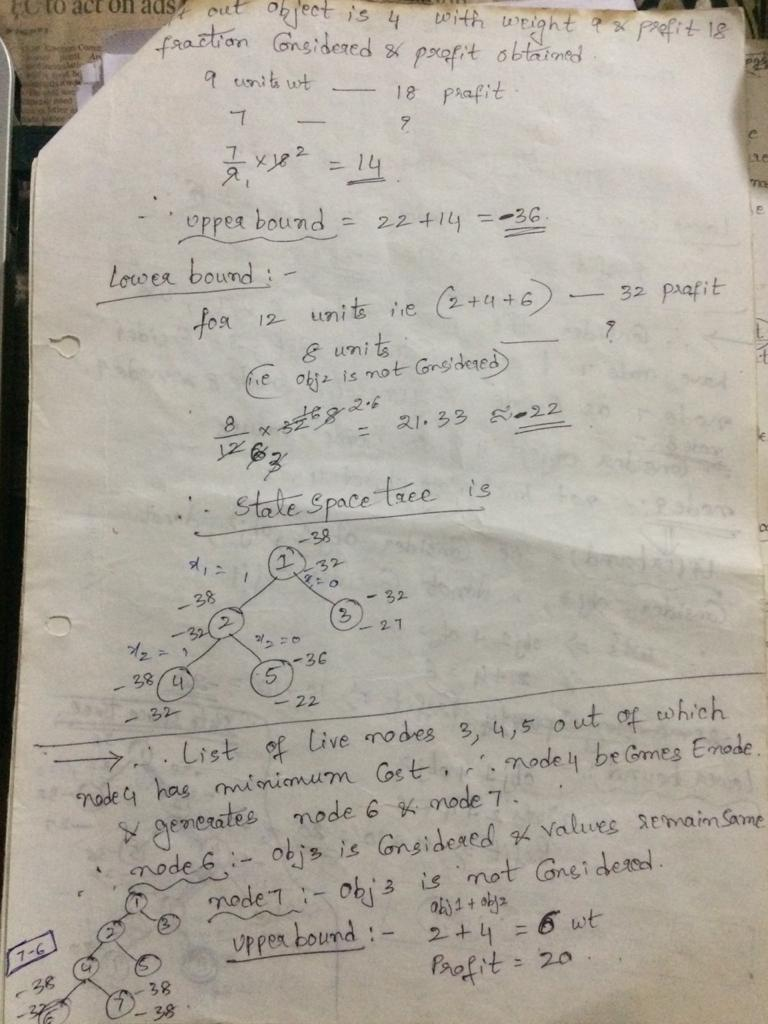 EC to act on ads
out object is 4 with weight 9 & profit 18
fraction Considered & profit obtained.
9 units wt — 18 profit.
7 — ?
7/9 1 × 18 2 = 14
∴ upper bound = 22 + 14 = -36.
Lower bound :-
for 12 units i.e (2+4+6) — 32 profit
8 units — ?
(i.e obj2 is not Considered)
8/12 6 3 × 32 16 8 2.6 = 21.33 ≈ -22
∴ State Space tree is
1 -38
x1 = 1 -32
x1=0
-38 2 3 -32
-32 -27
x2 = 1 x2=0
-38 4 5 -36
-32 -22
→ ∴ List of Live nodes 3, 4, 5 out of which
node 4 has minimum Cost. ∴ node 4 becomes Enode.
& generates node 6 & node 7.
∴ node 6 :- Obj3 is Considered & values remain same
node 7 :- Obj 3 is not Considered.
obj1 + obj2
upper bound :- 2 + 4 = 6 wt
Profit = 20.
1
2 3
7-6
4 5
-38 -38
-32 6 7 -38